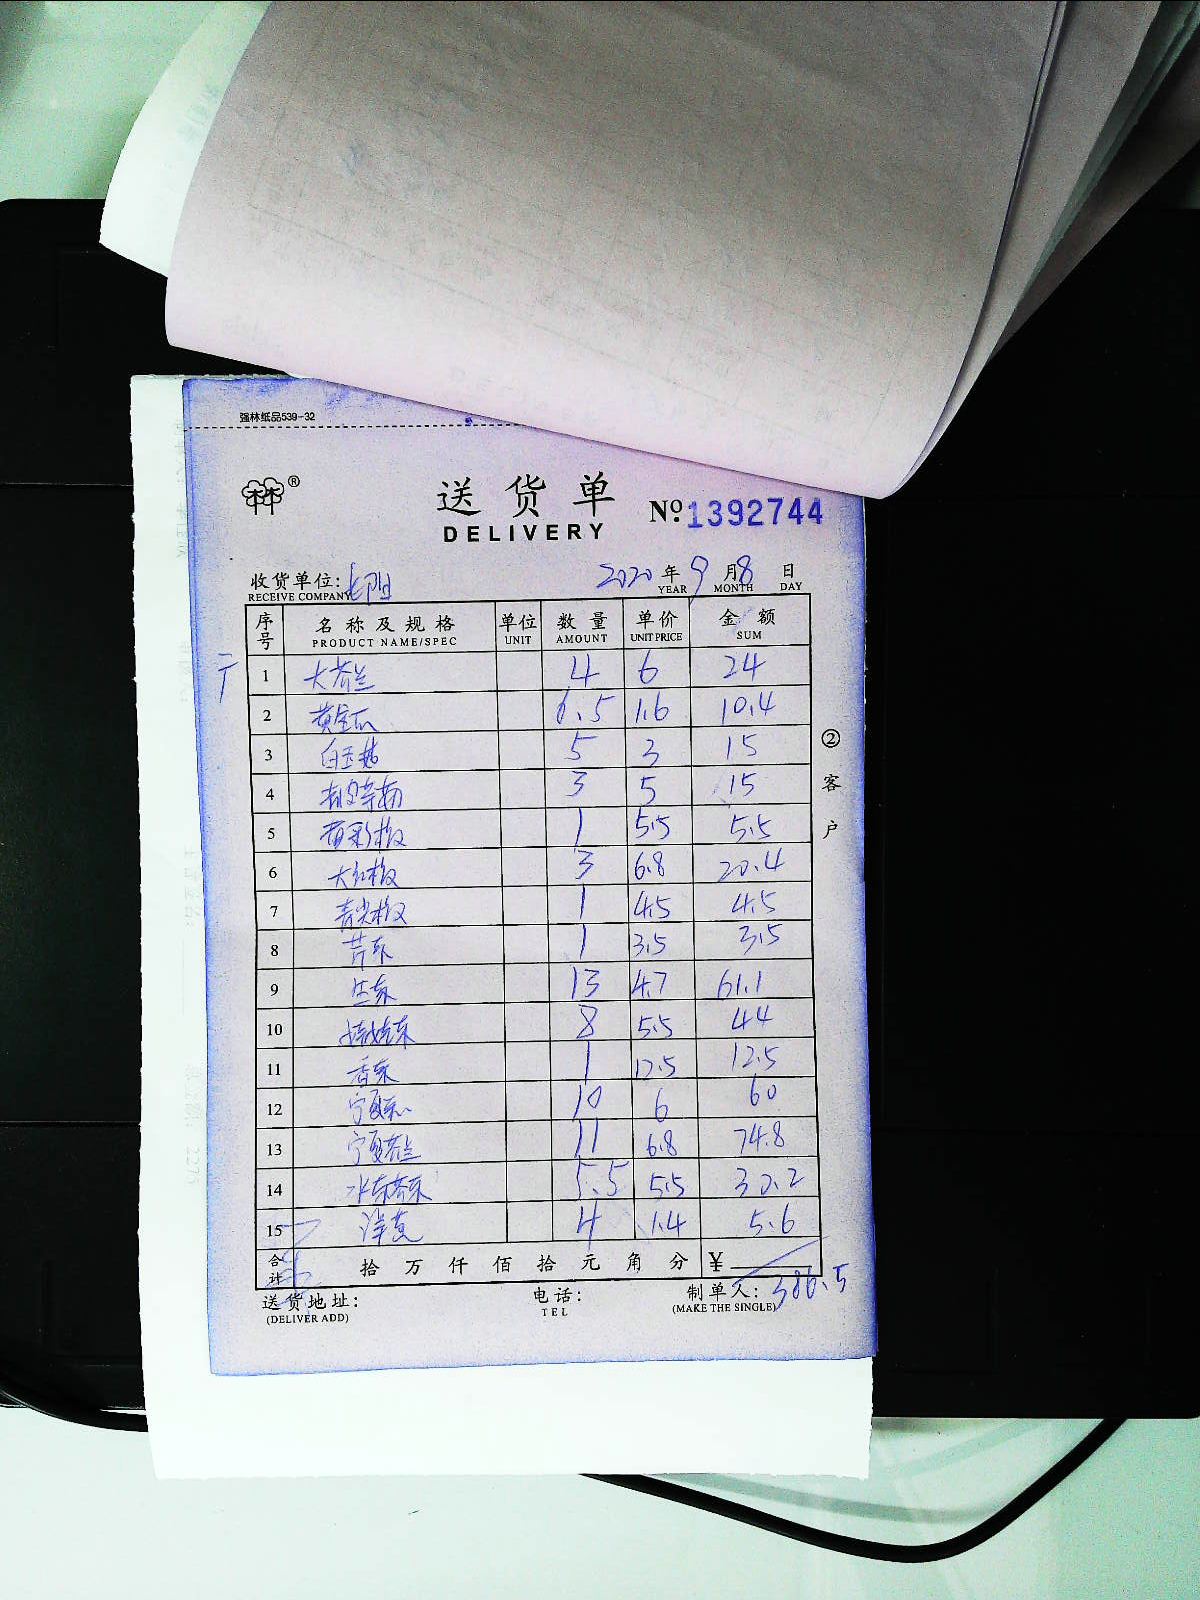 强林纸品539-32
林®
送货单 №:1392744
DELIVERY
收货单位: 2020年9月8日
RECEIVE COMPANY YEAR MONTH DAY
序号 名称及规格 单位 数量 单价 金额
PRODUCT NAME/SPEC UNIT AMOUNT UNIT PRICE SUM
1 大芥兰 4 6 24
2 黄金瓜 6.5 1.6 10.4
3 白玉菇 5 3 15
4 3 5 15
5 黄彩椒 1 5.5 5.5
6 大红椒 3 6.8 20.4
7 青尖椒 1 4.5 4.5
8 芹菜 1 3.5 3.5
9 生菜 13 4.7 61.1
10 娃娃菜 8 5.5 44
11 香菜 1 12.5 12.5
12 宁夏菜心 10 6 60
13 宁夏芥兰 11 6.8 74.8
14 水东芥菜 5.5 5.5 30.2
15 洋葱 4 1.4 5.6
合计 拾 万 仟 佰 拾 元 角 分 ¥ 386.5
送货地址: 电话: 制单人:
(DELIVER ADD) TEL (MAKE THE SINGLE)
②客户